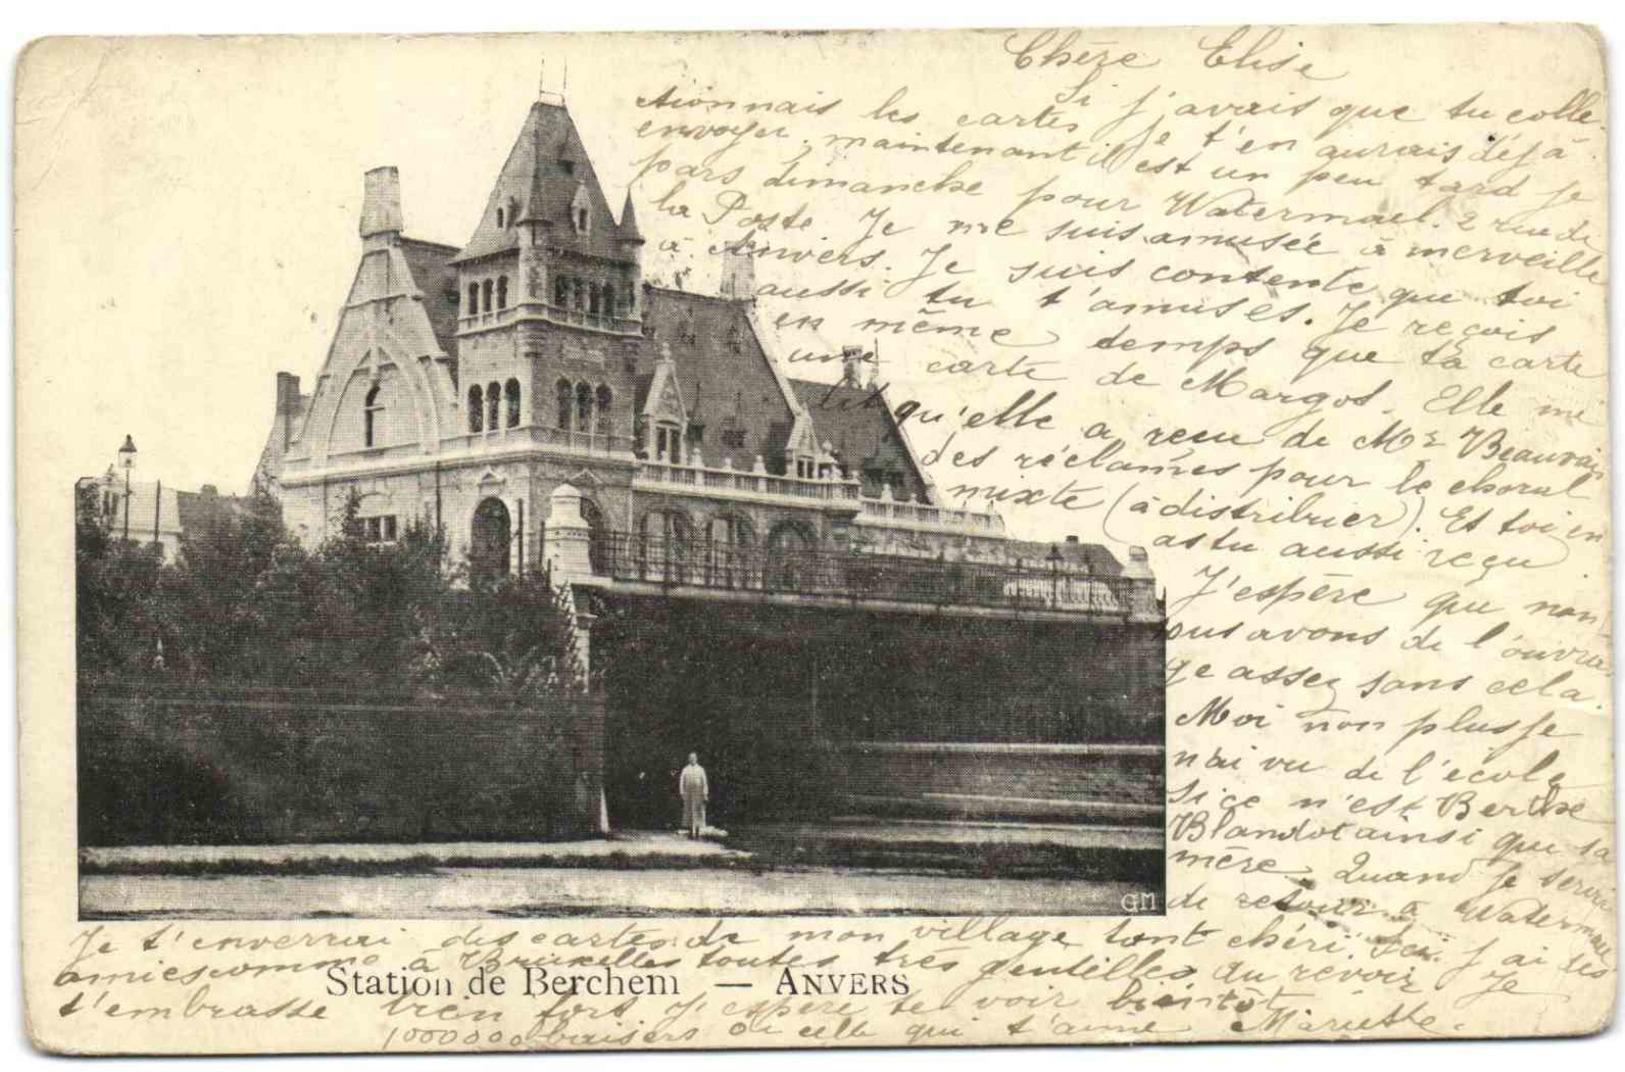 Chère Elise
Si j'avais que tu colle-
ctionnais les cartes je t'en aurais déjà
envoyer, maintenant il est un peu tard je
pars dimanche pour Watermael. 2 rue de
la Poste Je me suis amusée à merveille
à Anvers. Je suis contente que toi
aussi tu t'amuses. Je reçois
en même temps que ta carte
une carte de Margot. Elle me
dit qu'elle a reçu de Mr Beauvais
des réclames pour le choral
mixte (à distribuer). Et toi en
as tu aussi reçu
J'espère que non
ous avons de l'ouvra
ge assez sans cela.
Moi non plus je
n'ai vu de l'école
si ce n'est Berthe
Blandot ainsi que sa
mère. Quand je serai
de retour à Watermael
Je t'enverrai des cartes de mon village tant chéri. Ici j'ai des
amies comme à Bruxelles toutes très gentilles au revoir Je
Station de Berchem — ANVERS
t'embrasse bien fort. J'espère te voir bientôt
1000000 baisers de celle qui t'aime Mariette.
GM